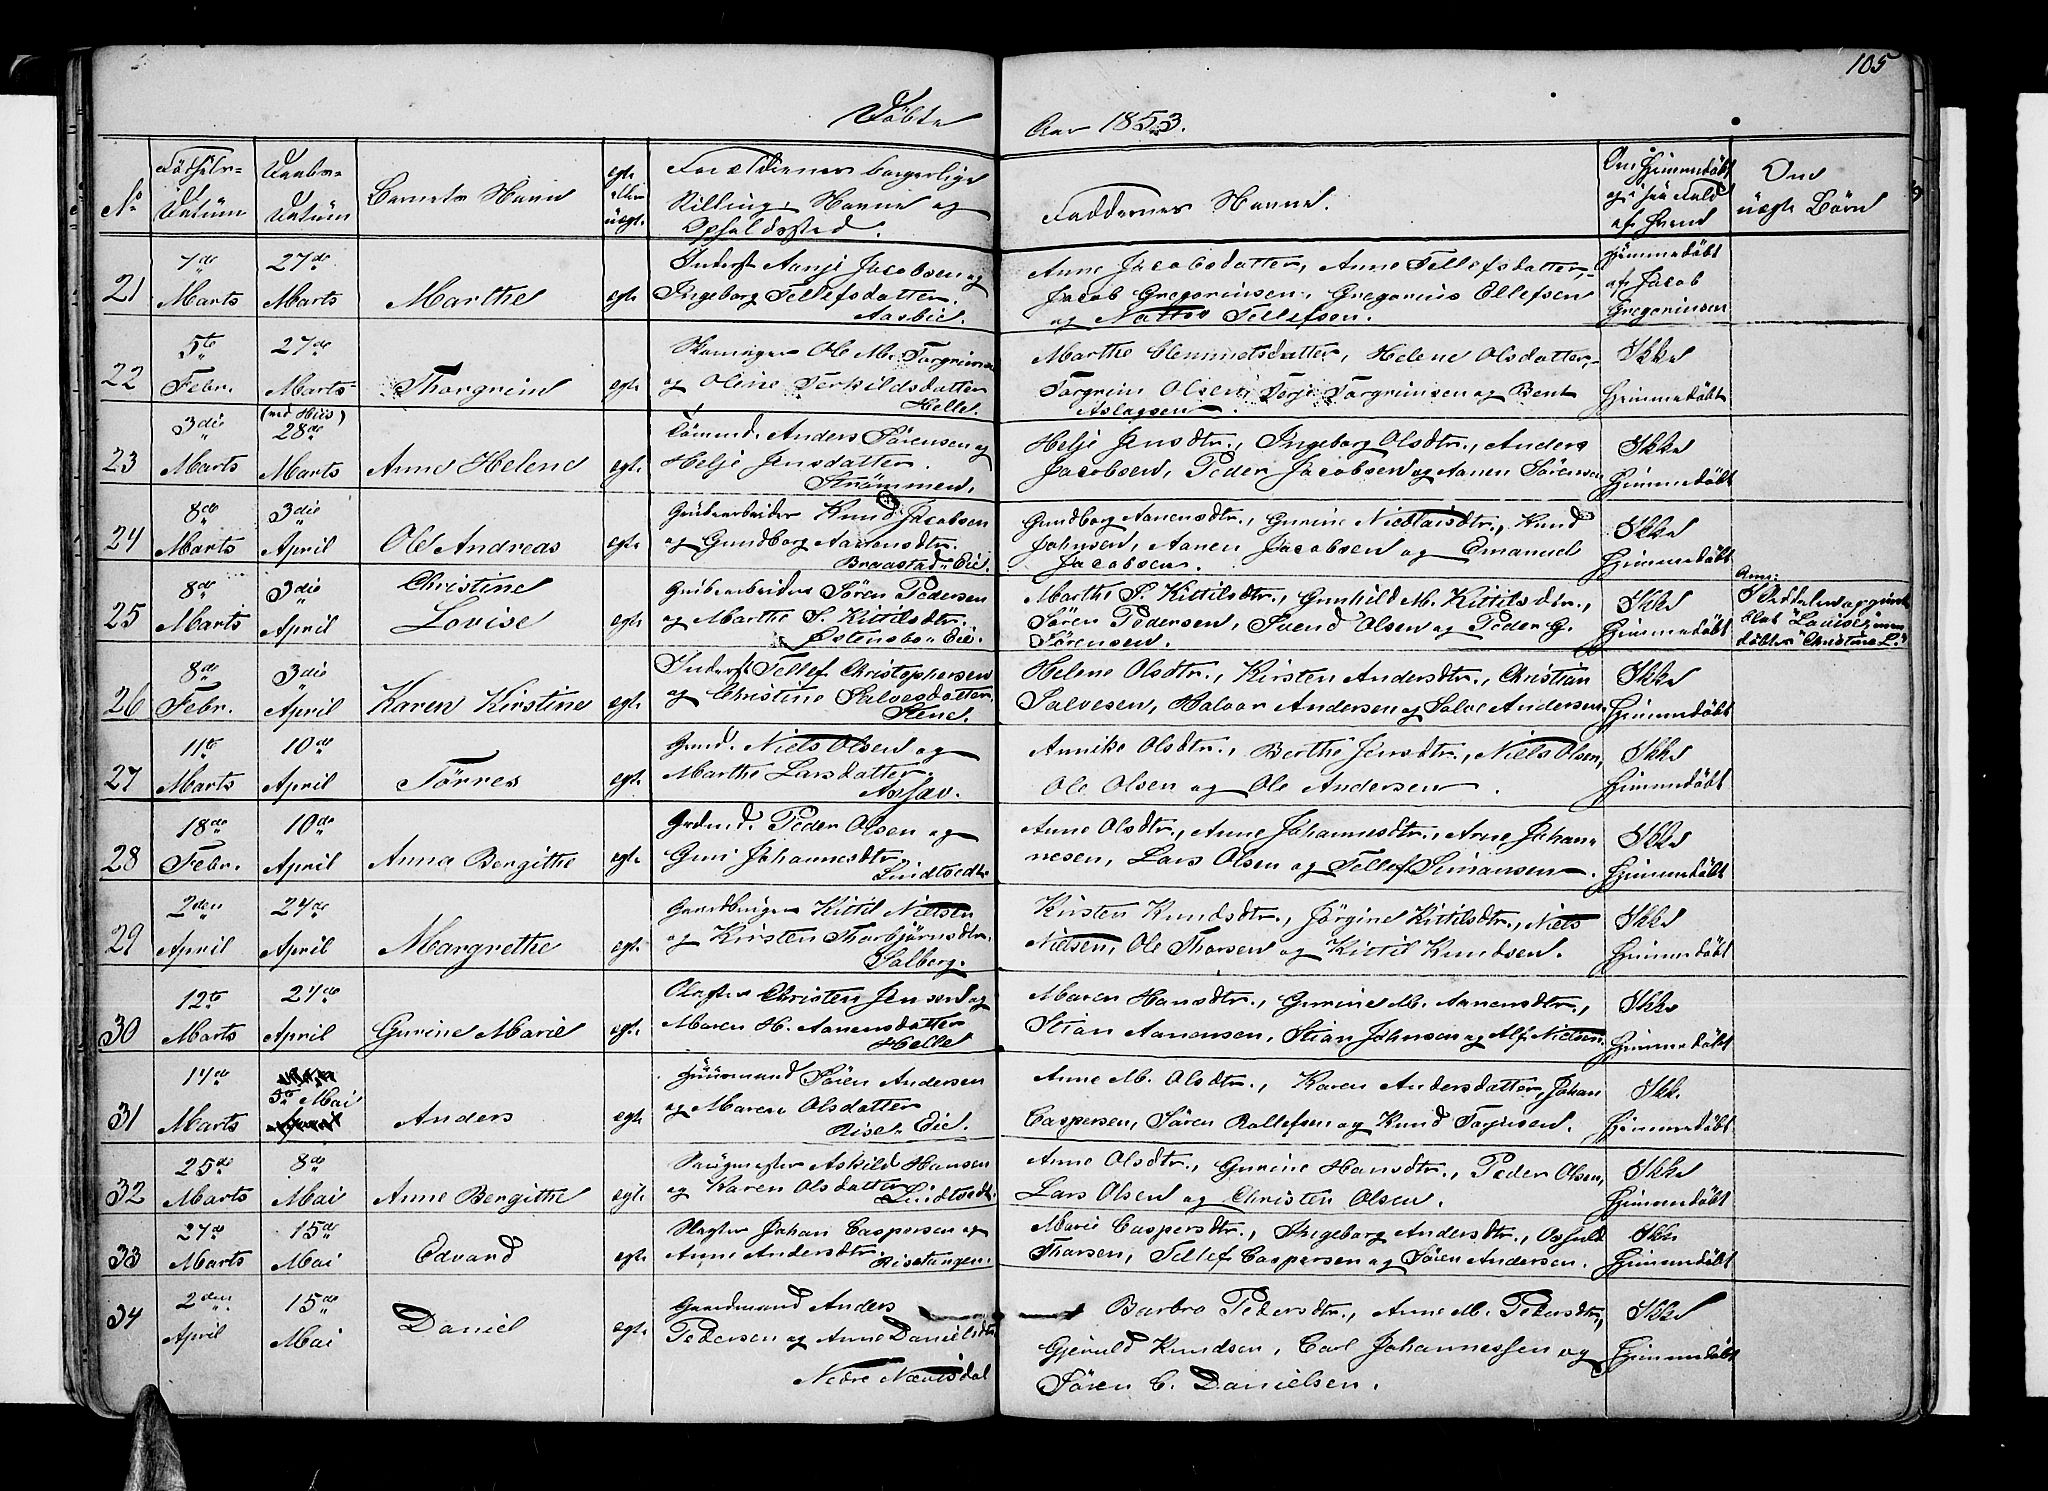 105
Døbte
Aar 1853.
No
Fødsels-
Datum
Daabs-
Datum
Barnets Navn
egte
eller
uegt.
Forældrenes borgerlige
Stilling, Navne og
Opholdssted.
Faddernes Navne.
Om Hjemmedøbt
og i saa Fald
af hvem
Om
uægte Børn
21
7de
Marts
27de
Marts
Marthe
egte
Inderst Aanje Jacobsen og
Ingeborg Tellefsdatter.
Aasbie.
Anne Jacobsdatter, Anne Tellefsdatter,
Jacob Gregoriusen, Gregorius Ellefsen
og Tellefsen.
Hjemmedøbt
af Jacob
Gregoriusen
22
5te
Febr.
27de
Marts
Thorgrim
egte
Ole M. Torgrimsen
og Oline Terkildsdatter
Helle.
Marthe Clemmetsdatter, Helene Olsdatter,
Torgrim Olsen, Torje Torgrimsen og Bent
Aslagsen.
Ikke
Hjemmedøbt
23
3die
Marts
(ved Huus)
28de
Marts
Anne Helene
egte
Tømmd. Anders Sørensen og
Helje Jensdatter.
Strømmen.
Helje Jensdtr., Ingeborg Olsdtr., Anders
Jacobsen, Peder Jacobsen og Aanen Sørensen
Ikke
Hjemmedøbt
24
8de
Marts
3die
April
Ole Andreas
egte
Grubearbeider Knud Jacobsen
og Gundborg Aanensdtr.
Braastad-Eie.
Gundborg Aanensdtr., Gurine Nicolaisdtr., Knud
Johnsen, Aanen Jacobsen og Emanuel
Jacobsen.
Ikke
Hjemmedøbt
25
8de
Marts
3die
April
Christine
Lovise
egte
Grubearbeider Søren Pedersen
og Marthe S. Kittilsdtr.
Østensbo-Eie.
Marthe S. Kittilsdtr., Gunhild M. Kittilsdtr.,
Søren Pedersen, Svend Olsen og Peder G.
Sørensen.
Ikke
Hjemmedøbt
Anm:
blot "Louise", men
døbtes "Christine L."
26
8de
Febr.
3die
April
Karen Kirstine
egte
Inderst Tellef Christophersen
og Christine Salvesdatter
Stene.
Helene Olsdtr., Kirsten Andersdtr., Christian
Salvesen, Halvor Andersen og Salve Andersen
Ikke
Hjemmedøbt
27
11te
Marts
10de
April
Tørres
egte
Grmd. Niels Olsen og
Marthe Larsdatter.
Annike Olsdtr., Berthe Jensdtr., Niels Olsen,
Ole Olsen og Ole Andersen.
Ikke
Hjemmedøbt
28
18de
Febr.
10de
April
Anna Bergithe
egte
Grdmd. Peder Olsen og
Guri Johannesdtr.
Lindtvedt.
Anne Olsdtr., Anne Johannesdtr., Arne Johan-
nesen, Lars Olsen og Tellef Simonsen.
Ikke
Hjemmedøbt
29
2den
April
24de
April
Margrethe
egte
Kittil Nielsen
og Kirsten Thorbjørnsdtr.
Solberg.
Kirsten Knudsdtr., Jørgine Kittilsdtr., Niels
Nielsen, Ole Thorsen og Kittil Knudsen.
Ikke
Hjemmedøbt
30
12te
Marts
24de
April
Gurine Marie
egte
Christen Jensen og
Maren H. Aanensdatter
Helle
Maren Hansdtr., Gurine M. Aanensdtr.,
Stian Aanensen, Stian Johnsen og Alf Nielsen.
Ikke
Hjemmedøbt
31
14de
Marts
5te Mai
Anders
egte
Huusmand Søren Andersen
og Maren Olsdatter
Rise-Eie.
Anne M. Olsdtr., Karen Andersdatter, Johan
Caspersen, Søren Rollefsen og Knud Torjusen.
Ikke
Hjemmedøbt
32
25de
Marts
8de
Mai
Anne Bergithe
egte
Askild Hansen
og Karen Olsdatter
Lindtvedt.
Anne Olsdtr., Gurine Hansdtr., Peder Olsen,
Lars Olsen og Christen Olsen.
Ikke
Hjemmedøbt
33
27de
Marts
15de
Mai
Edvard
egte
Slagter Johan Caspersen og
Anne Andersdtr.
Risetangen.
Marie Caspersdtr., Ingeborg Andersdtr., Osfuld
Thorsen, Tellef Caspersen og Søren Andersen.
Ikke
Hjemmedøbt
34
2den
April
15de
Mai
Daniel
egte
Gaardmand Anders
Pedersen og Anne Danielsdtr.
Nedre
Barbro Pedersdtr., Anne M. Pedersdtr.,
Gjeruld Knudsen, Carl Johannessen og
Søren C. Danielsen.
Ikke
Hjemmedøbt